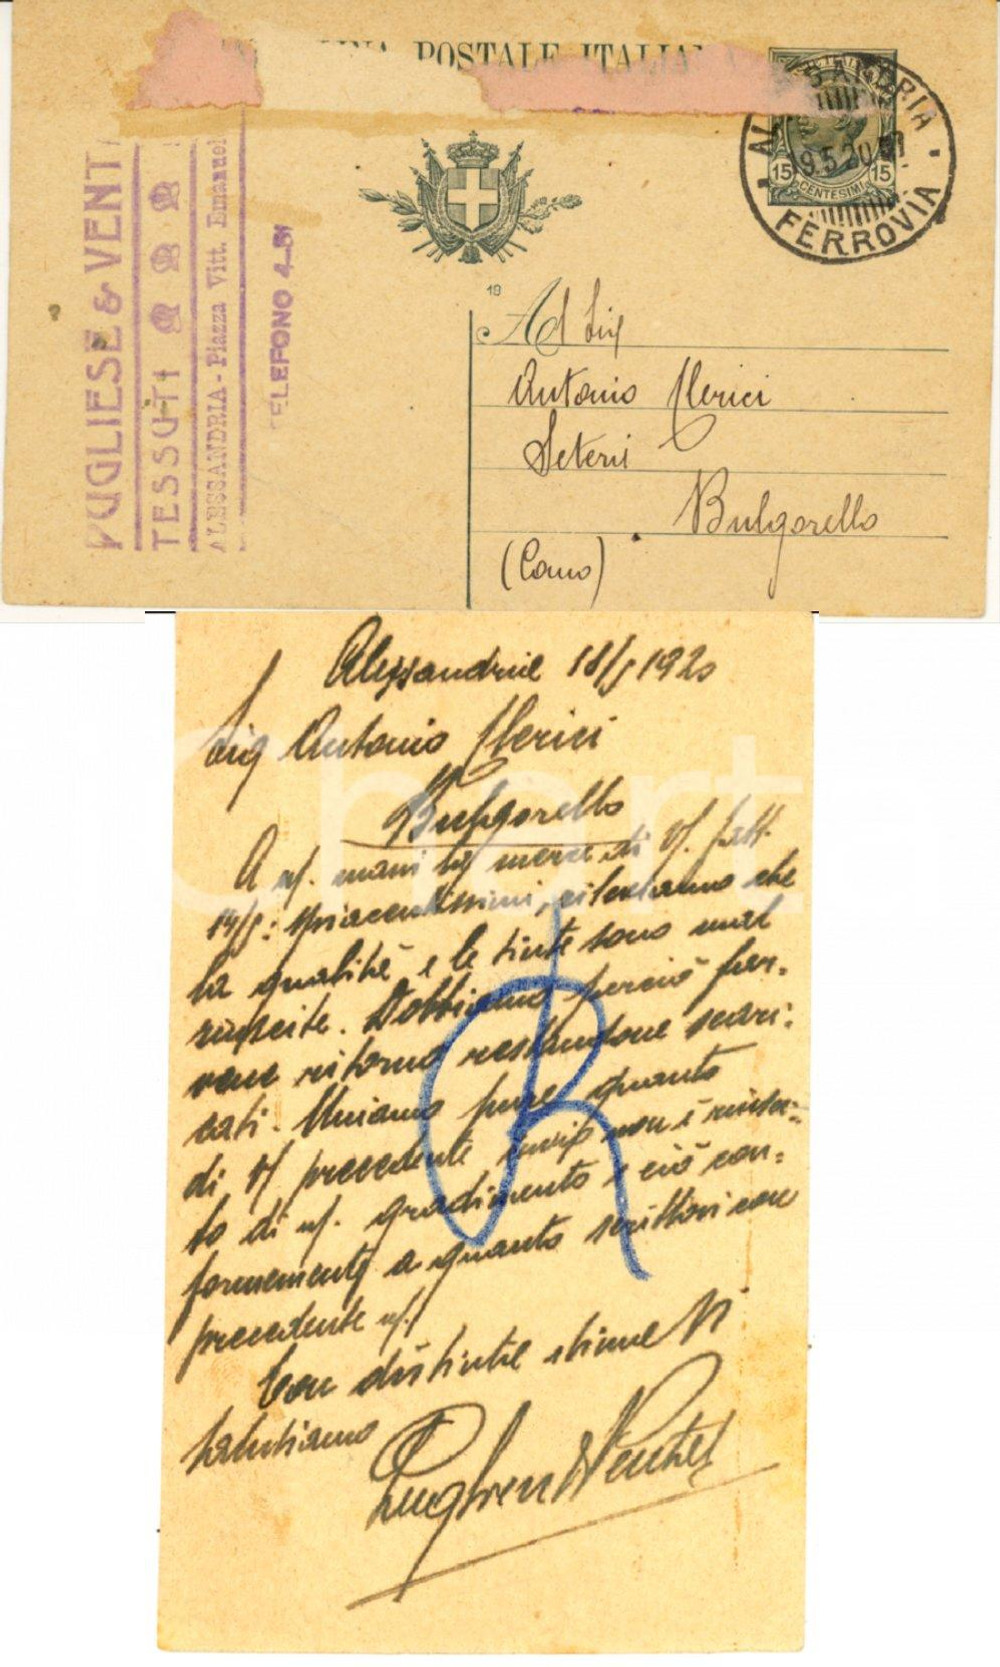 POSTALE ITALIA
ALESSANDRIA
FERROVIA
9.5.20
15 15
CENTESIMI
PUGLIESE & VENT
TESSUTI
ALESSANDRIA - Piazza Vitt. Emanuel
ELEFONO 4-51
19
Al Sig
Antonio Clerici
Seterie
Bulgorello
(Como)
Alessandria 18/5 1920
Sig Antonio Clerici
Bulgorello
A n/. mani la merce di V/. fatt.
14/5: spiacentissimi, rileviamo che
la qualità e le tinte sono mal
riuscite. Dobbiamo perciò far-
vene ritorno restandone scari-
cati. Uniamo pure quanto
di V/ precedente invio non è risulta-
to di n/. gradimento e ciò con-
formemente a quanto scrittovi con
precedente n/.
Con distinta stima Vi
salutiamo
Pugliese & Ventu